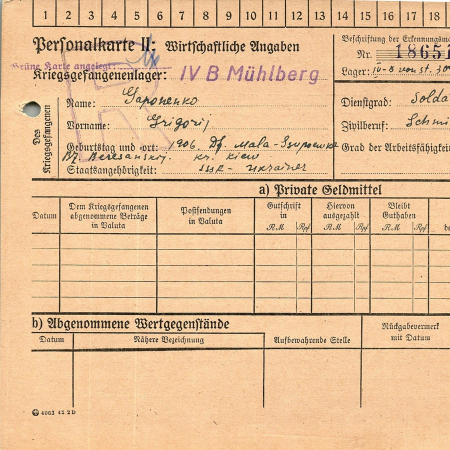 1 2 3 4 5 6 7 8 9 10 11 12 13 14 15 16 17 18
Personalkarte II: Wirtschaftliche Angaben
Beschriftung der Erkennungsma
Grüne Karte angelegt:
Nr. 1865
Kriegsgefangenenlager: IV B Mühlberg
Lager: IV-B
Des Kriegsgefangenen
Name: Gaponenko
Dienstgrad: Solda
Vorname: Grigorij
Zivilberuf: Schmi
Geburtstag und -ort: 1906. Df. Mala-
Grad der Arbeitsfähigkeit
Beresanskij. kr. Kiew
Staatsangehörigkeit: SSR - Ukrainer
a) Private Geldmittel
Datum
Dem Kriegsgefangenen abgenommene Beträge in Valuta
Postsendungen in Valuta
Gutschrift in
RM Rpf
Hiervon ausgezahlt
RM Rpf
Bleibt Guthaben
RM Rpf
be
b) Abgenommene Wertgegenstände
Datum
Nähere Bezeichnung
Aufbewahrende Stelle
Rückgabevermerk mit Datum
4063 42 2 D